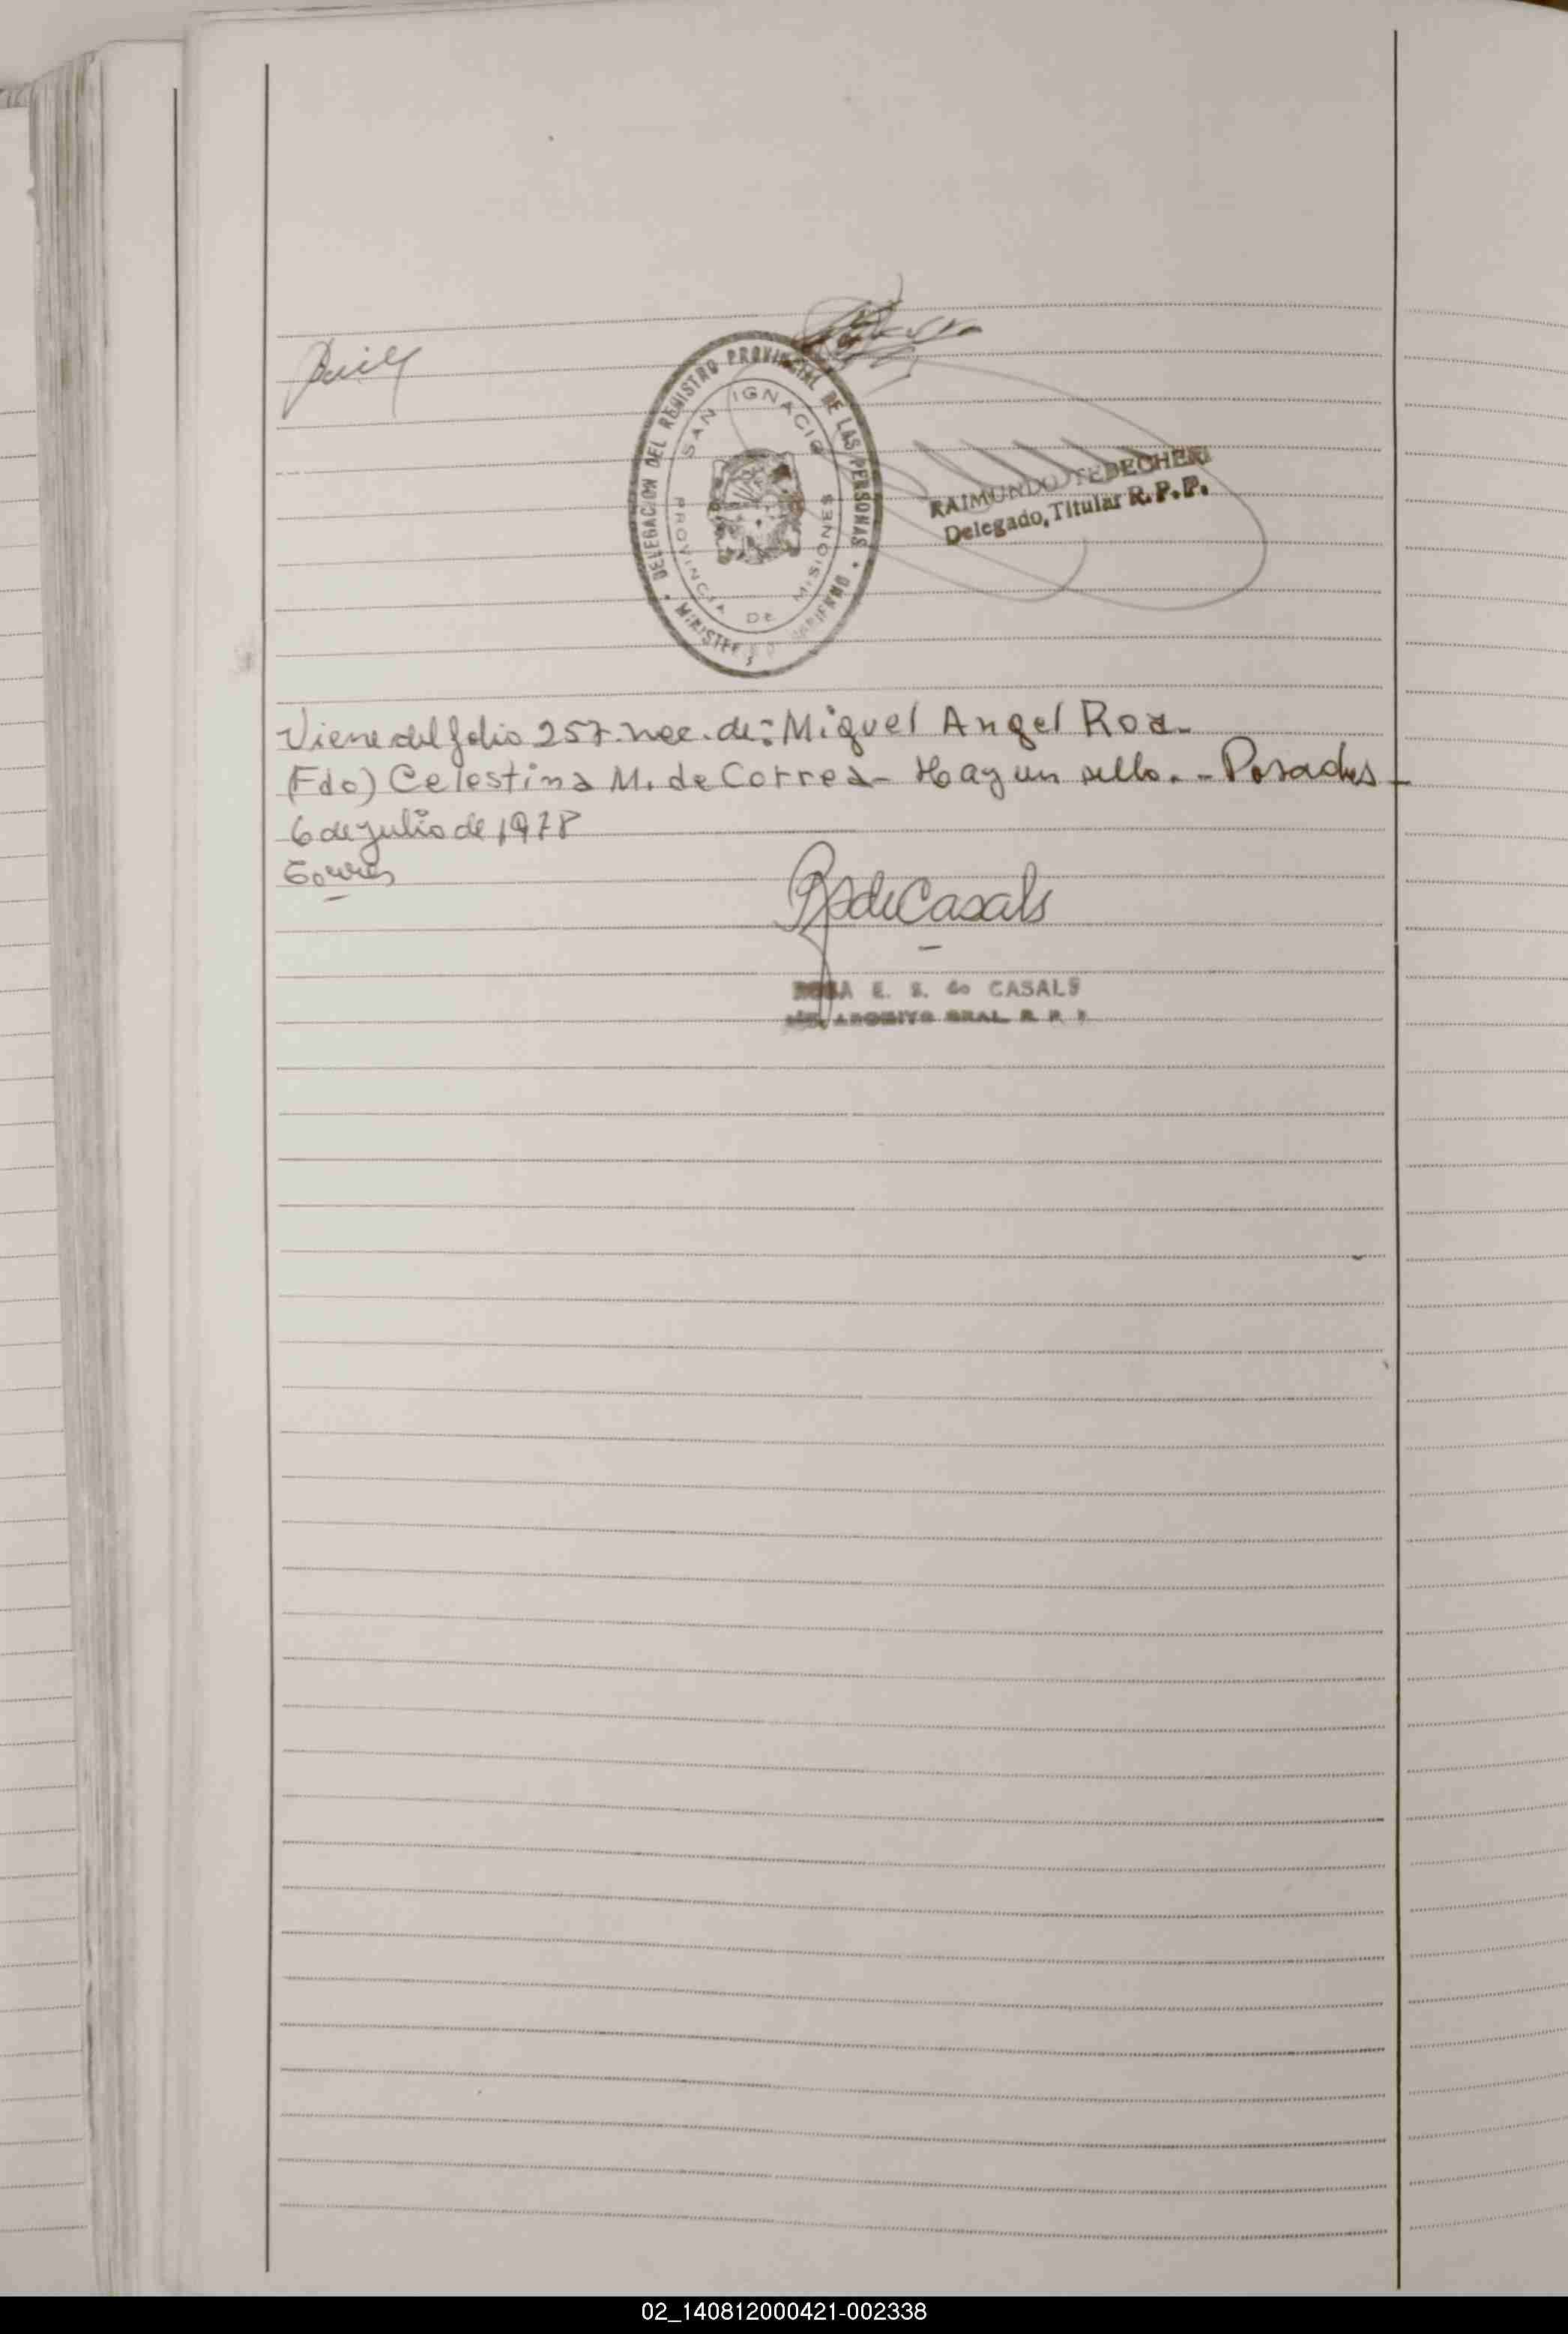 DELEGACION DEL REGISTRO PROVINCIAL DE LAS PERSONAS
SAN IGNACIO
PROVINCIA DE MISIONES
RAIMUNDO TEDECHER
Delegado, Titular R.P.P.
Viene del folio 257. nac. de: Miguel Angel Roa.-
(Fdo) Celestina M. de Correa- Hay un sello.- Posadas-
6 de julio de 1978
RSdeCasals
ROSA E. S. de CASALS
02_140812000421-002338